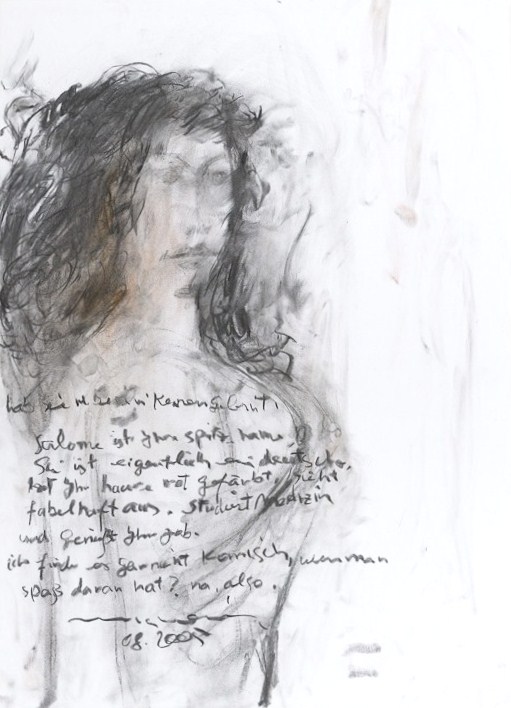 hab sie in Berlin kennengelernt.
Salome ist ihr spitzname.
Sie ist eigentlich ein deutsche,
hat ihr haare rot gefärbt, sieht
fabelhaft aus. studiert Medizin
und genießt ihr gab.
ich finde es garnicht komisch, wenn man
spaß daran hat? na, also.
08. 2005